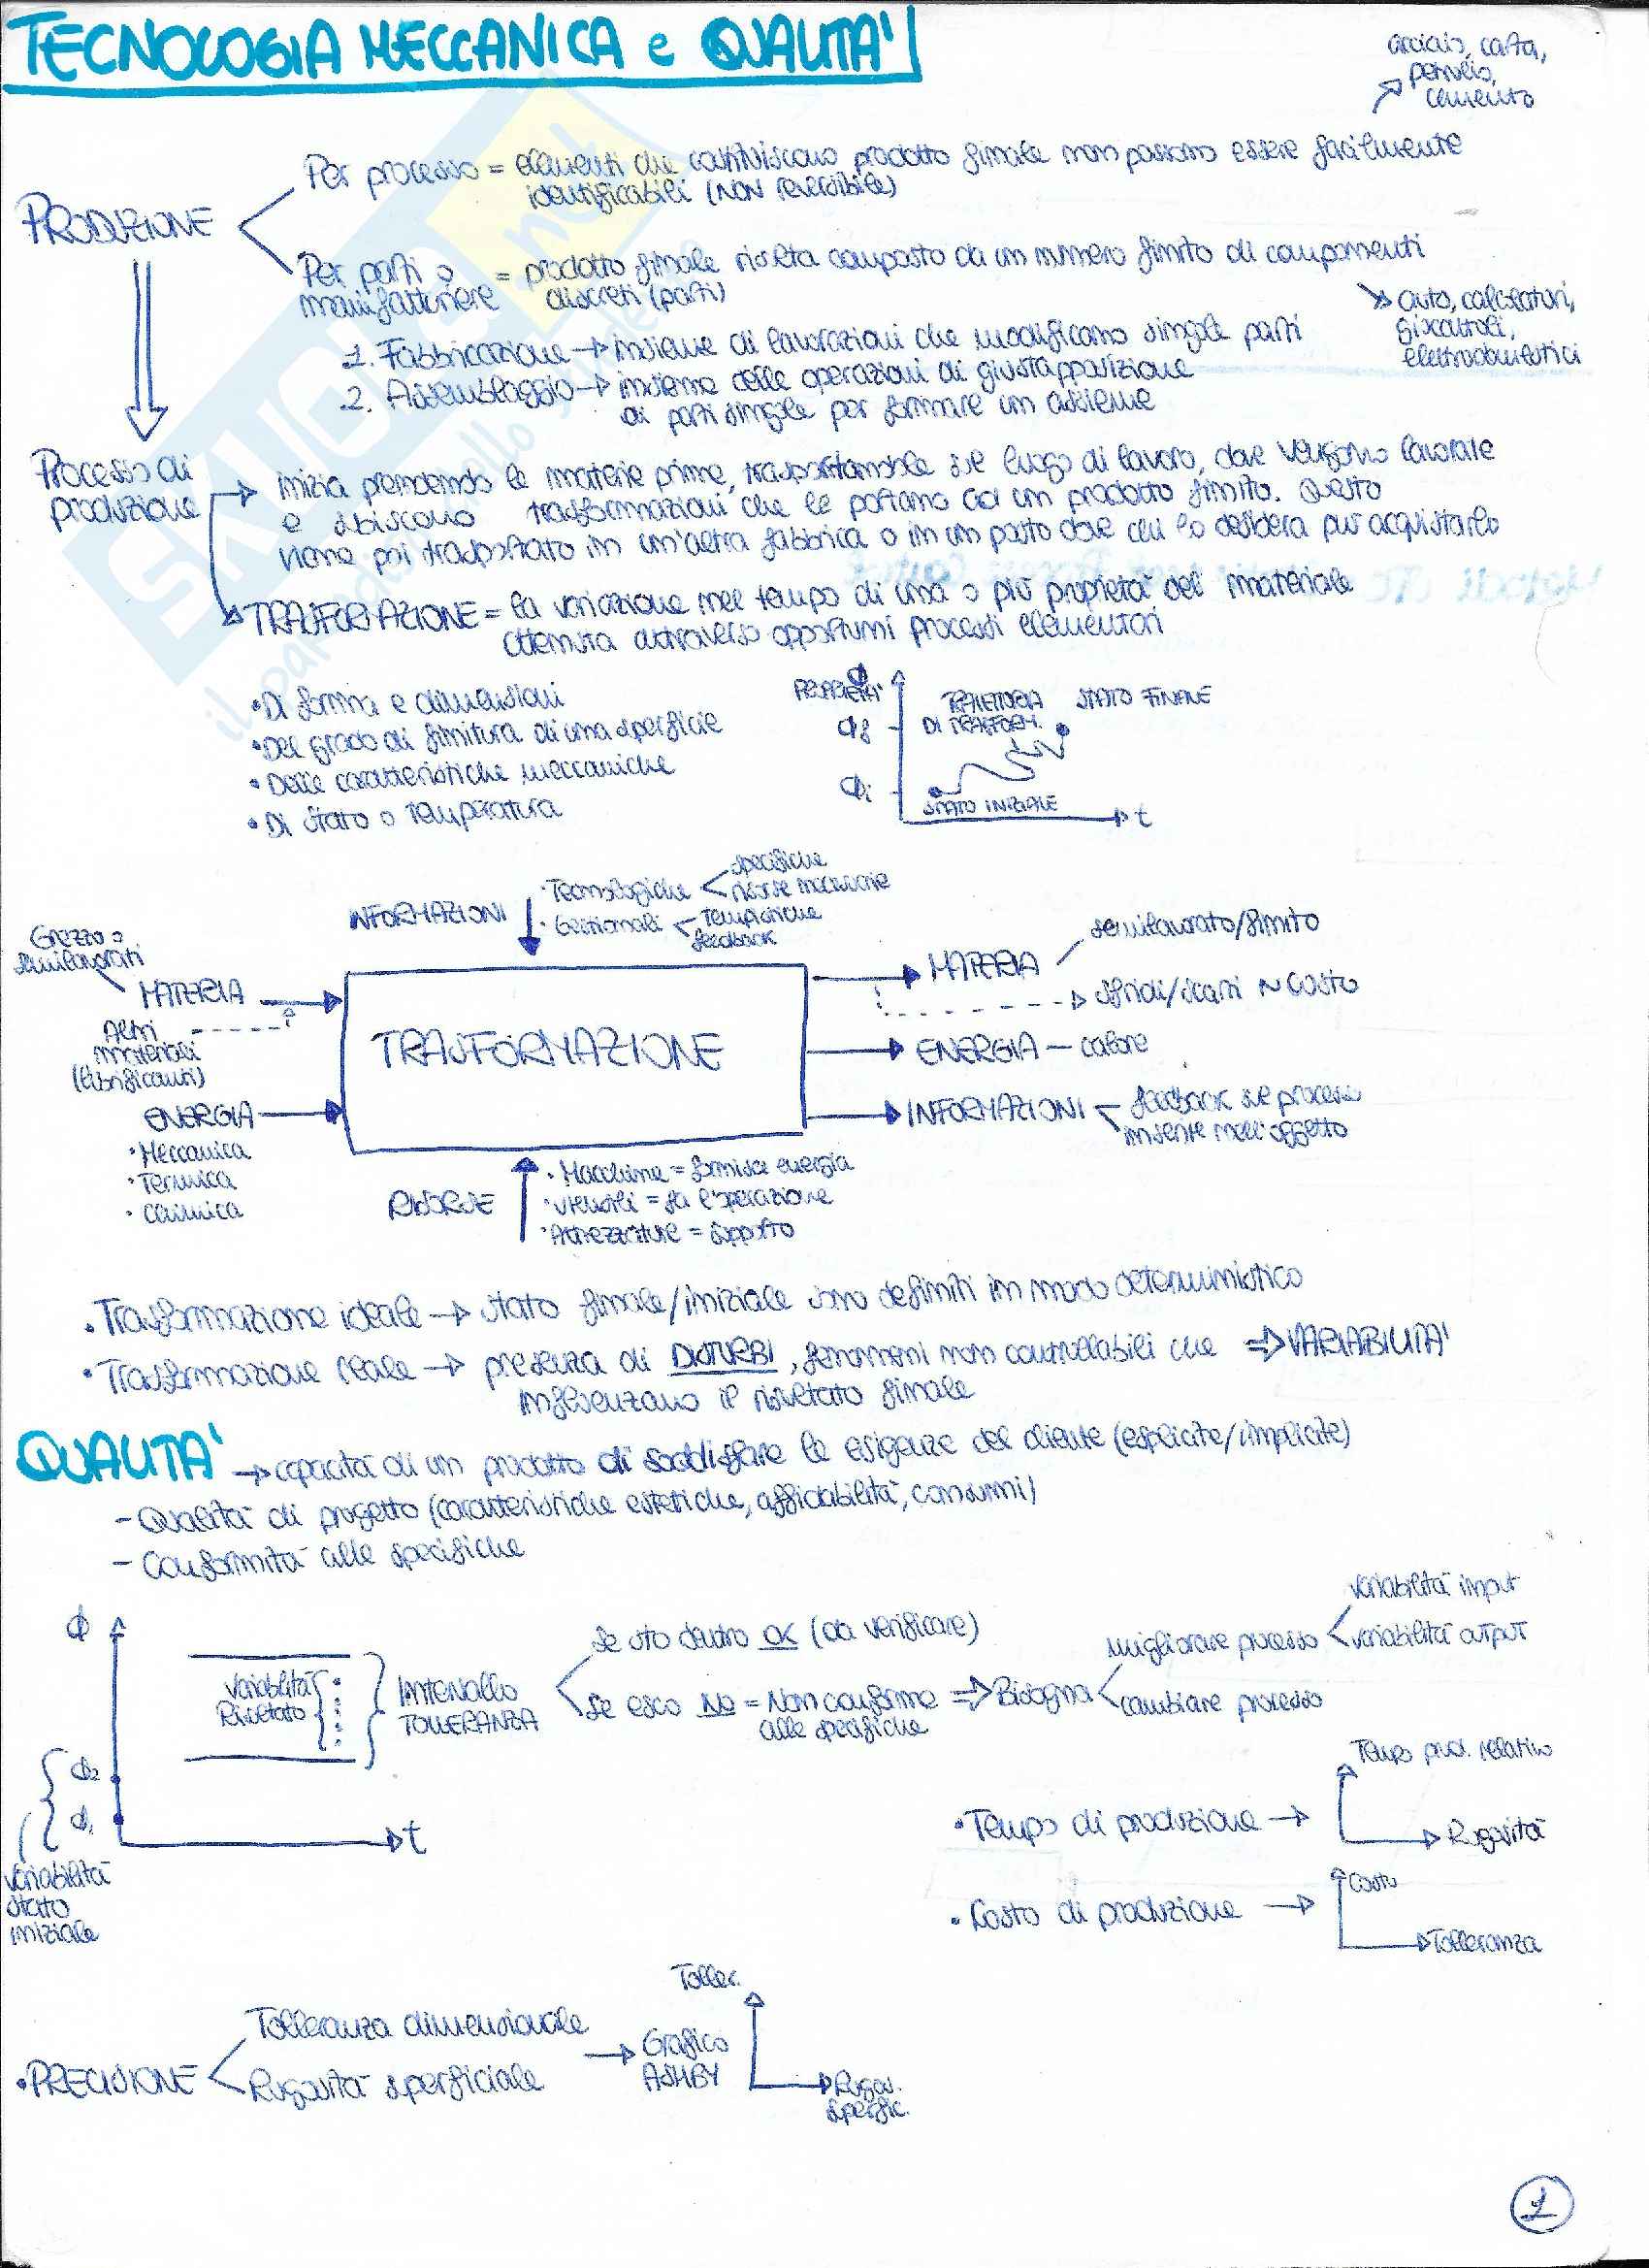 TECNOLOGIA MECCANICA e QUALITA'
acciaio, carta,
petrolio,
cemento
PRODUZIONE
Per processo = elementi che costituiscono prodotto finale non possono essere facilmente
identificabili (NON reversibile)
Per parti o = prodotto finale risulta composto da un numero finito di componenti
manifatturiere discreti (parti)
auto, calcolatori,
giocattoli,
elettrodomestici
1. Fabbricazione → insieme di lavorazioni che modificano singole parti
2. Assemblaggio → insieme delle operazioni di giustapposizione
di parti singole per formare un assieme
Processo di
produzione
inizia prendendo le materie prime, trasportandole sul luogo di lavoro, dove vengono lavorate
e subiscono trasformazioni che le portano ad un prodotto finito. Questo
viene poi trasportato in un'altra fabbrica o in un posto dove chi lo desidera può acquistarlo
TRASFORMAZIONE = la variazione nel tempo di una o più proprietà del materiale
ottenuta attraverso opportuni processi elementari
• Di forma e dimensioni
• Del grado di finitura di una superficie
• Delle caratteristiche meccaniche
• Di stato o temperatura
PROPRIETA' Φ
Φf
Φi
TRAIETTORIA
DI TRASFORM.
STATO FINALE
STATO INIZIALE
t
INFORMAZIONI
• Tecnologiche < specifiche
risorse necessarie
• Gestionali < Tempistiche
feedback
Grezzo o
semilavorati
MATERIA
Altri
materiali
(lubrificanti)
ENERGIA
• Meccanica
• Termica
• Chimica
TRASFORMAZIONE
MATERIA
semilavorato/finito
sfridi/scarti ~ Costo
ENERGIA — calore
INFORMAZIONI < feedback sul processo
insente nell'oggetto
RISORSE
• Macchine = fornisce energia
• Utensili = fa l'operazione
• Attrezzature = supporto
• Trasformazione ideale → stato finale/iniziale sono definiti in modo deterministico
• Trasformazione reale → presenza di DISTURBI, fenomeni non controllabili che ⇒ VARIABILITA'
influenzano il risultato finale
QUALITA' → capacità di un prodotto di soddisfare le esigenze del cliente (esplicite/implicite)
- Qualità di progetto (caratteristiche estetiche, affidabilità, consumi)
- Conformità alle specifiche
Φ
variabilità
Risultato
INTERVALLO
TOLLERANZA
Se sto dentro OK (da verificare)
Se esco NO = Non conforme ⇒ Bisogna
alle specifiche
migliorare processo
variabilità input
variabilità output
cambiare processo
Φ2
Φ1
t
variabilità
stato
iniziale
• Tempo di produzione →
Tempo prod. relativo
Rugosità
• Costo di produzione →
Costo
Tolleranza
• PRECISIONE
Tolleranza dimensionale
Rugosità superficiale
→ Grafico
ASHBY
Toller.
Rugos.
superfic.
1
SKUOLA.net
il paradiso dello studente